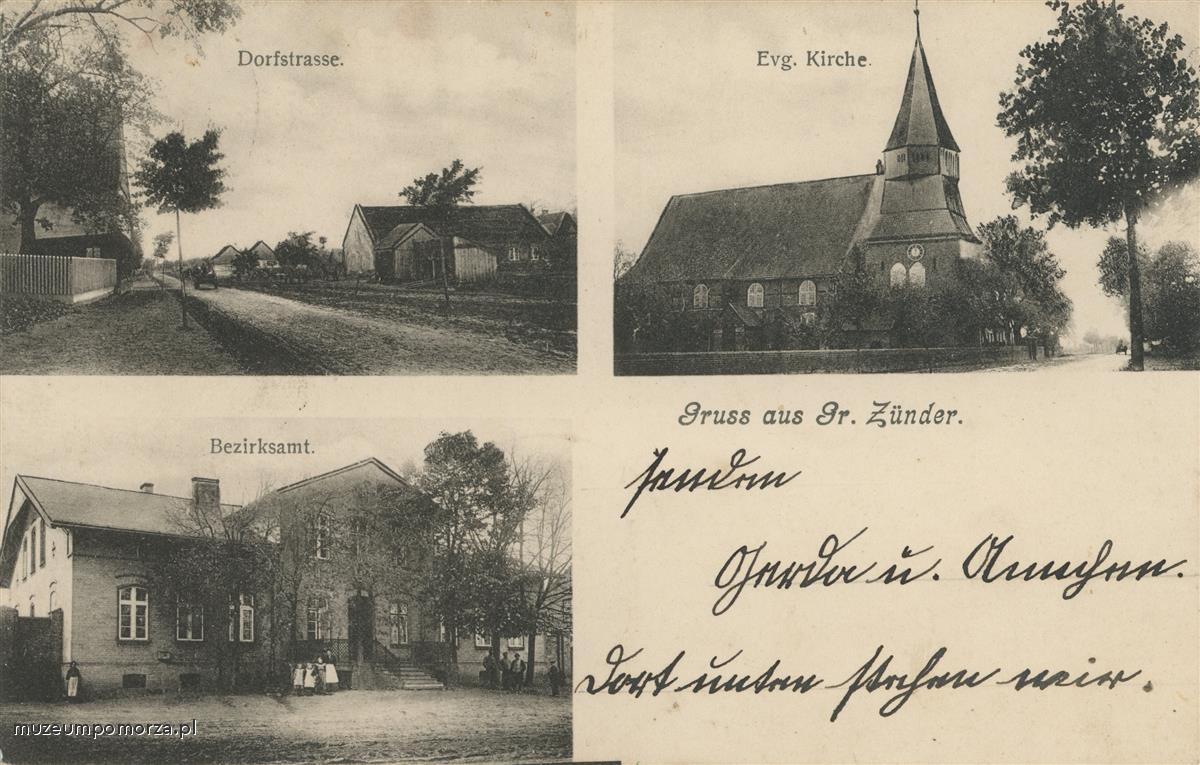 Dorfstrasse.
Evg. Kirche.
Gruss aus Gr. Zünder.
senden
Gerda u. Annchen.
Dort unten stehen wir.
Bezirksamt.
muzeumpomorza.pl